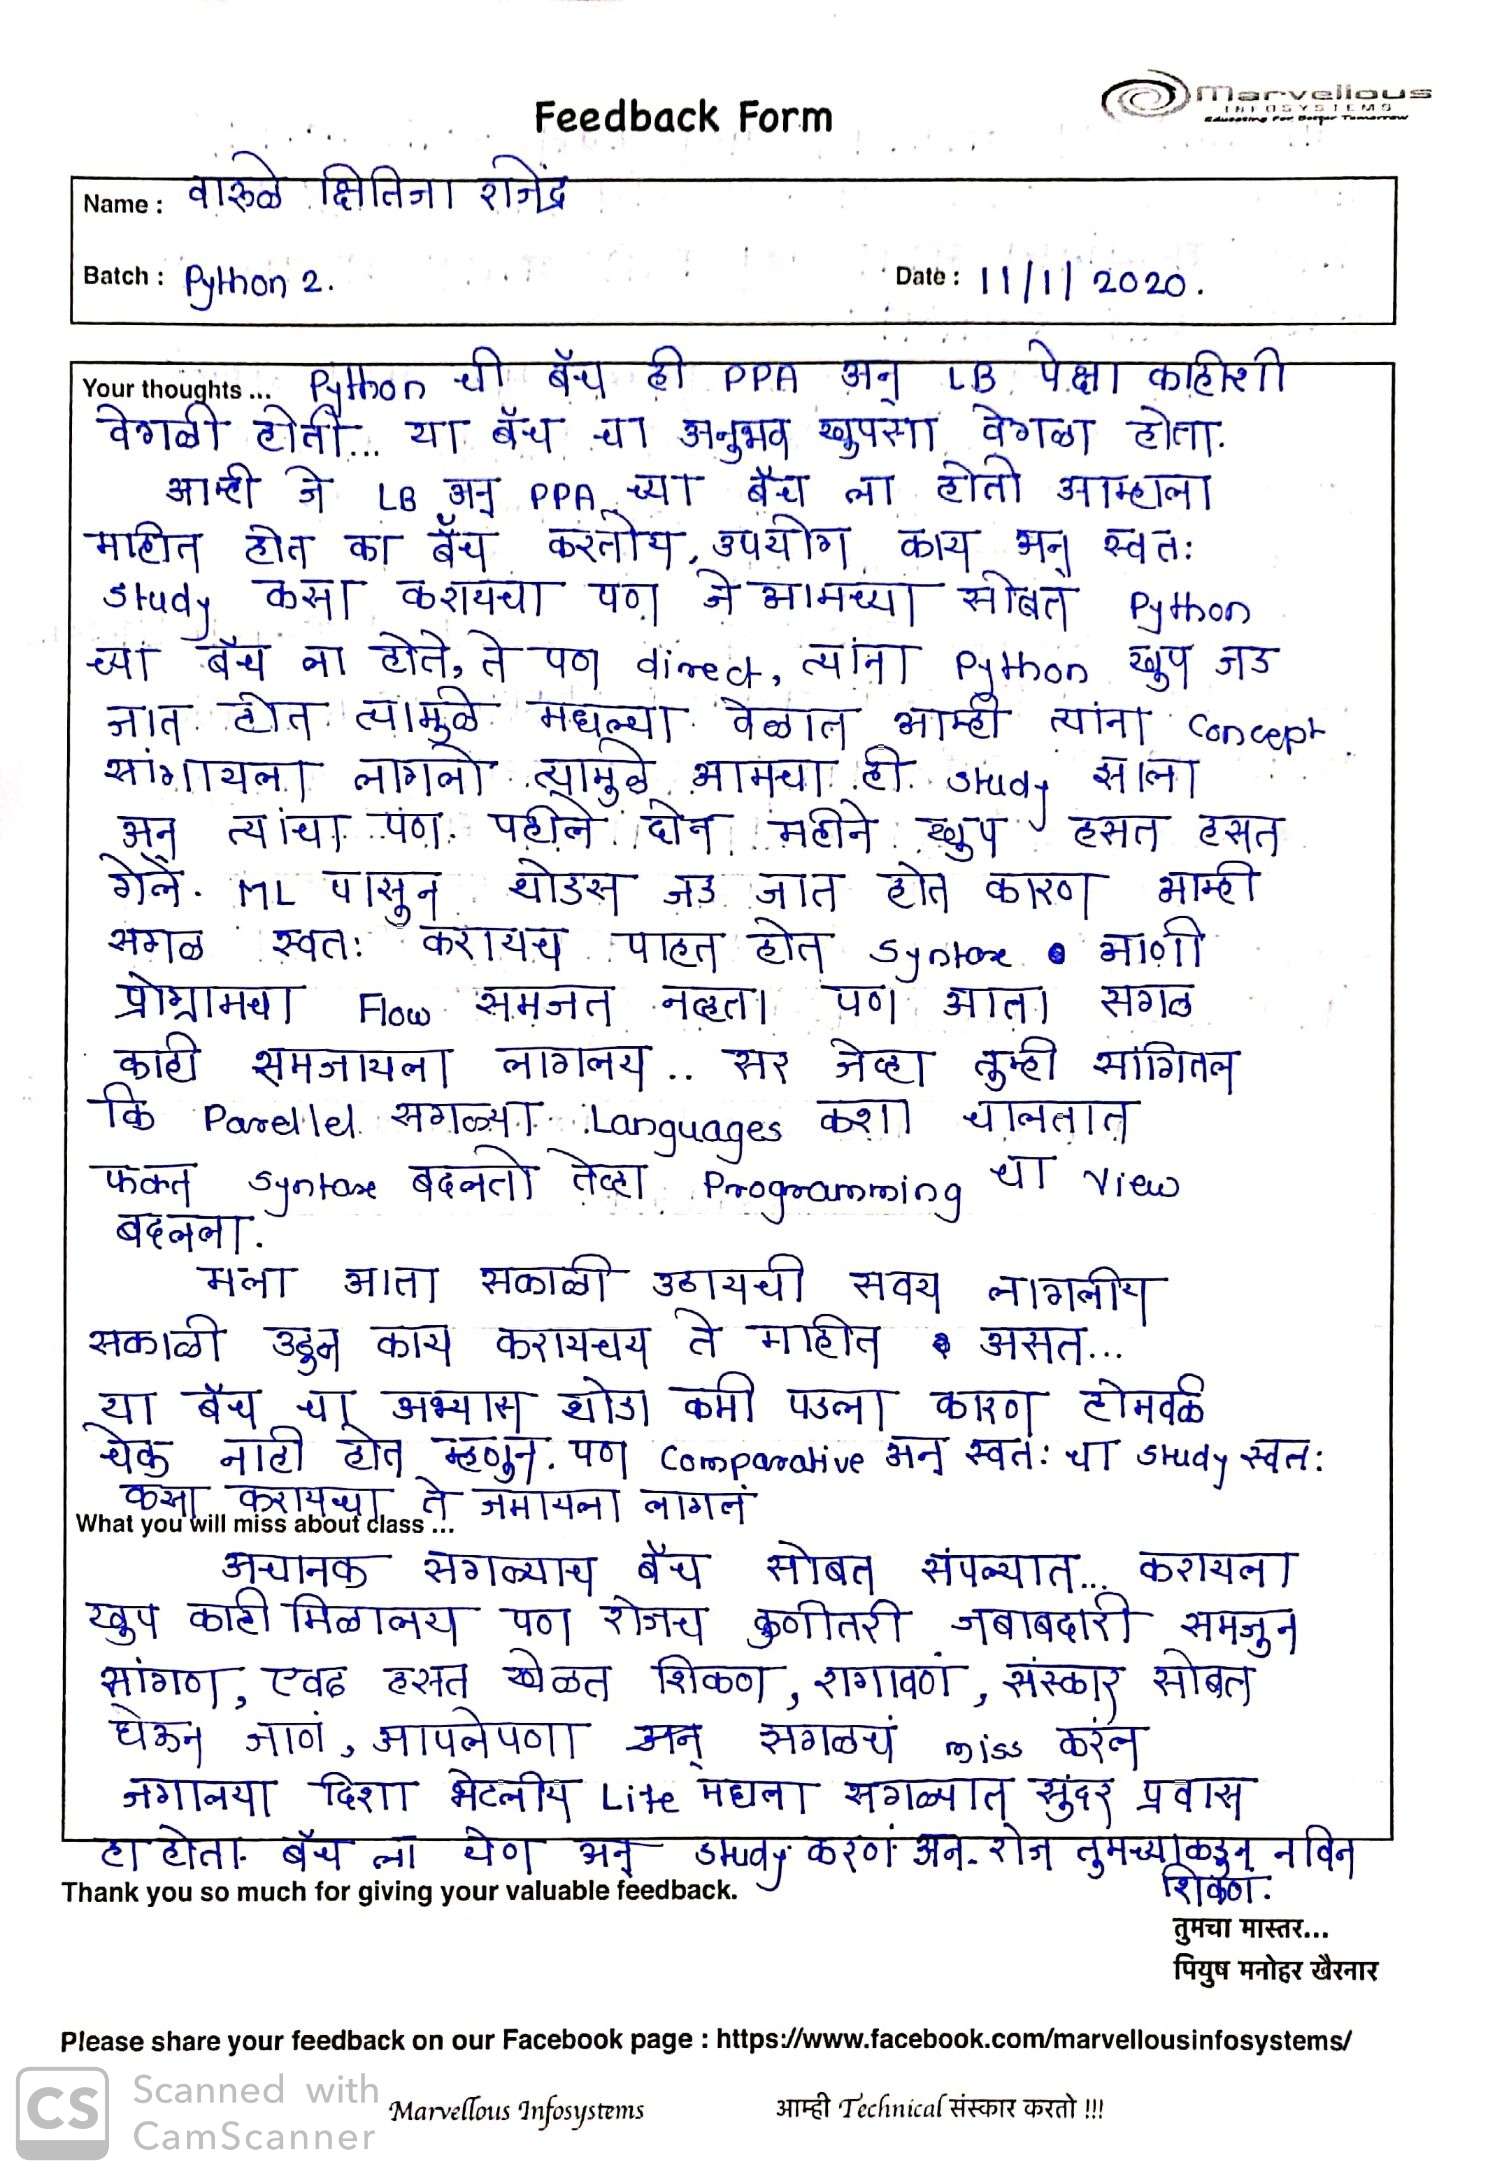 Marvellous
INFOSYSTEMS
Educating For Better Tomorrow
Feedback Form
Name : वारुळे क्षितिजा राजेंद्र
Batch : Python 2.
Date : 11/1/2020.
Your thoughts ... Python ची बॅच ही PPA अन् LB पेक्षा काहीशी
वेगळी होती... या बॅच चा अनुभव खुपसा वेगळा होता.
आम्ही जे LB अन् PPA च्या बॅच ला होतो आम्हाला
माहीत होत का बॅच करतोय, उपयोग काय अन् स्वतः
study कसा करायचा पण जे आमच्या सोबत Python
च्या बॅच ला होते, ते पण direct, त्यांना Python खुप जड
जात होत त्यामुळे मधल्या वेळात आम्ही त्यांना Concept
सांगायला लागलो त्यामुळे आमचा ही study झाला
अन् त्यांचा पण. पहीले दोन महीने खुप हसत हसत
गेले. ML पासुन थोडस जड जात होत कारण आम्ही
सगळ स्वतः करायच पाहत होत syntax आणी
प्रोग्रामचा Flow समजत नव्हता पण आता सगळ
काही समजायला लागलय .. सर जेव्हा तुम्ही सांगितल
कि Parellel सगळ्या Languages कशा चालतात
फक्त syntax बदलतो तेव्हा Programming चा View
बदलला.
मला आता सकाळी उठायची सवय लागलीय
सकाळी उठुन काय करायचय ते माहीत असत...
या बॅच चा अभ्यास थोडा कमी पडला कारण होमवर्क
चेक नाही होत म्हणुन. पण Comparative अन् स्वतः चा study स्वतः
कसा करायचा ते जमायला लागलं
What you will miss about class ...
अचानक सगळ्याच बॅच सोबत संपल्यात... करायला
खुप काही मिळालय पण रोजच कुणीतरी जबाबदारी समजुन
सांगण, एवढ हसत खेळत शिकण, रागावणं, संस्कार सोबत
घेऊन जाणं, आपलेपणा अन् सगळचं miss करेल
जगालया दिशा भेटलीय Life मधला सगळ्यात सुंदर प्रवास
हा होता. बॅच ला येण अन् study करणं अन. रोज तुमच्याकडुन नविन
शिकण.
Thank you so much for giving your valuable feedback.
तुमचा मास्तर...
पियुष मनोहर खैरनार
Please share your feedback on our Facebook page : https://www.facebook.com/marvellousinfosystems/
CS Scanned with
CamScanner
Marvellous Infosystems
आम्ही Technical संस्कार करतो !!!